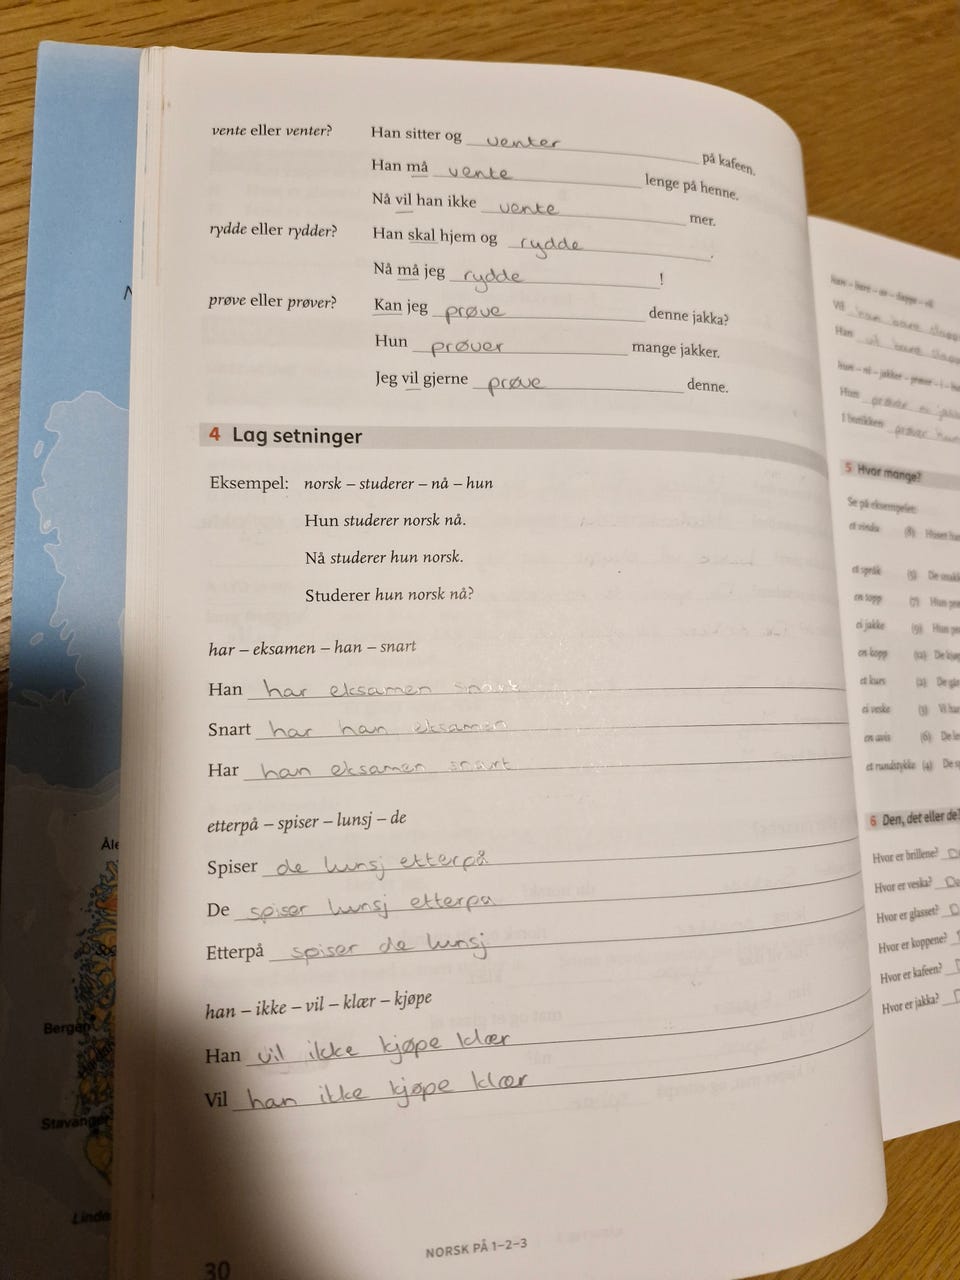 vente eller venter? Han sitter og venter på kafeen.
Han må vente lenge på henne.
Nå vil han ikke vente mer.
rydde eller rydder? Han skal hjem og rydde.
Nå må jeg rydde!
prøve eller prøver? Kan jeg prøve denne jakka?
Hun prøver mange jakker.
Jeg vil gjerne prøve denne.
4 Lag setninger
Eksempel: norsk – studerer – nå – hun
Hun studerer norsk nå.
Nå studerer hun norsk.
Studerer hun norsk nå?
har – eksamen – han – snart
Han har eksamen snart
Snart har han eksamen
Har han eksamen snart
etterpå – spiser – lunsj – de
Spiser de lunsj etterpå
De spiser lunsj etterpå
Etterpå spiser de lunsj
han – ikke – vil – klær – kjøpe
Han vil ikke kjøpe klær
Vil han ikke kjøpe klær
30
NORSK PÅ 1–2–3
Åle
Bergen
Stavanger
Linde
Vil
Han
Hun
I butikken prøver hun
5 Hvor mange?
Se på eksempelet:
et vindu (8) Huset ha
et språk (5) De snakk
en topp (7) Hun prø
ei jakke (9) Hun
en kopp (12) De kjøp
et kurs (2) De
ei veske (3) Vi har
en avis (6) De le
et rundstykke (4) De sp
6 Den, det eller de?
Hvor er brillene? D
Hvor er veska? De
Hvor er glasset? D
Hvor er koppene?
Hvor er kafeen? D
Hvor er jakka?